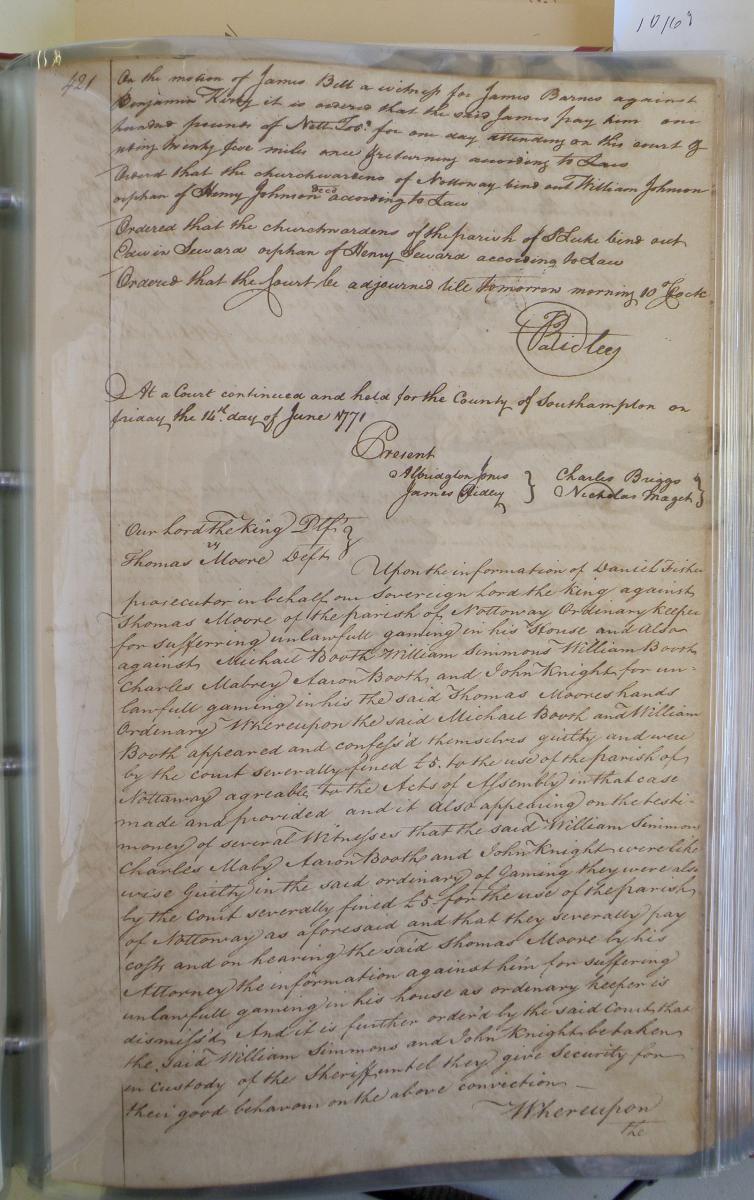 10/67
421
On the motion of James Bell a witness for James Barnes against
Benjamin Kirby it is ordered that the said James pay him one
hundred pounds of Nett Tob.o for one day attending on this court &
riding twenty five miles once & returning according to Law
Orderd that the churchwardens of Nottoway bind out William Johnson
orphan of Henry Johnson decd according to Law
Ordered that the churchwardens of the parish of St Luke bind out
Edwin Seward orphan of Henry Seward according to Law
Ordered that the Court be adjourned till tomorrow morning 10 oClock
Ridley
At a Court continued and held for the County of Southampton on
friday the 14th day of June 1771
Present
Albridgton Jones } Charles Briggs }
James Ridley Nicholas Maget
Our Lord the King Pltf }
vs
Thomas Moore Deft
Upon the information of Daniel Fisher
prosecutor in behalf our Sovereign Lord the King against
Thomas Moore of the parish of Nottoway Ordinary keeper
for suffering unlawfull gaming in his House and Also
against Michael Booth William Simmons William Booth
Charles Mabrey Aaron Booth and John Knight for un-
lawfull gaming in his the said Thomas Moores hands
Ordinary Whereupon the said Michael Booth and William
Booth appeared and confess'd themselves guilty and were
by the court severally fined £5. to the use of the parish of
Nottaway agreable to the Acts of Assembly in that case
made and provided and it Also appearing on the testi-
money of several Witnesses that the said William Simmons
Charles Maby Aaron Booth and John Knight were like
wise Guilty in the said ordinary of Gaming they were also
by the Court severally fined £5. for the use of the parish
of Nottoway as aforesaid and that they severally pay
costs and on hearing the said Thomas Moore by his
Attorney the information against him for suffering
unlawfull gaming in his house as ordinary keeper is
dismiss'd And it is further order'd by the said Court that
the said William Simmons and John Knight be taken
in custody of the Sheriff untel they give Security for
their good behavour on the above conviction —
Whereupon
the